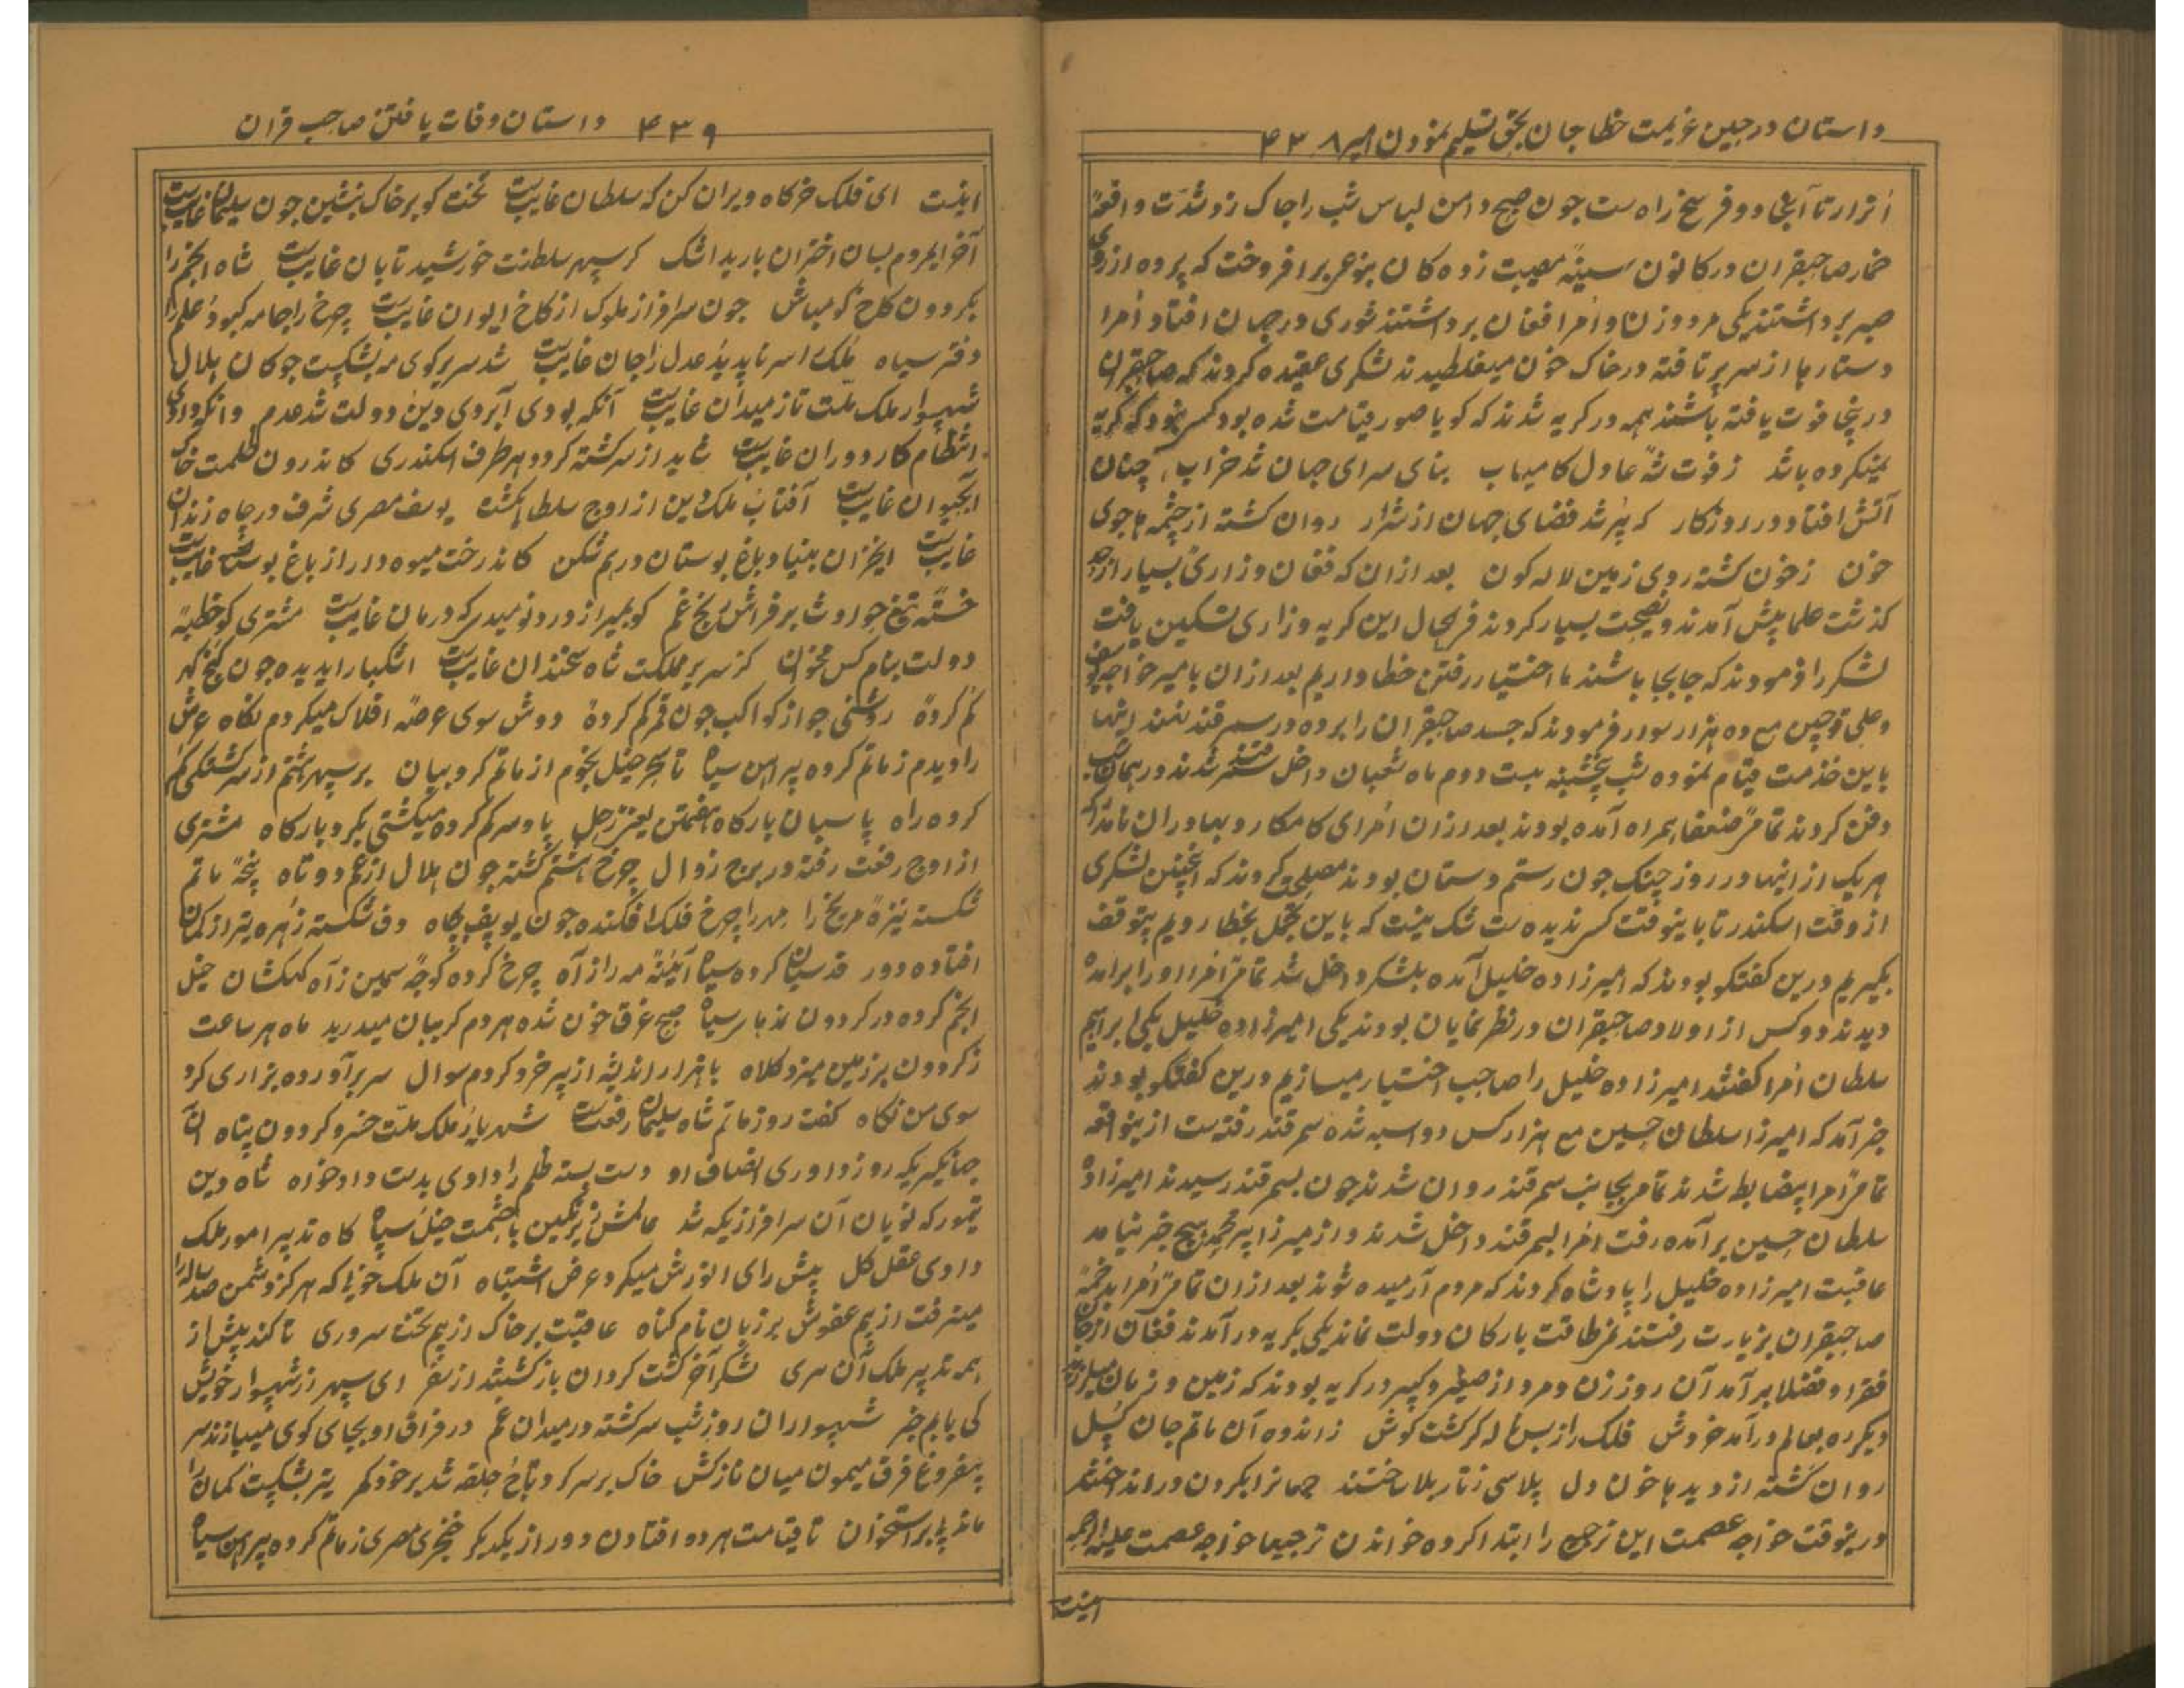 داستان در حین عزیمت خطا جان بحق تسلیم نمودن امیر ۴۳۸
اترار تا آنجا دو فرسخ راه ست چون صبح دامن لباس شب را چاک زد شدت واقعهٔ
صاحبقران در کانون سینهٔ مصیبت زده کان بنوعی برافروخت که پرده از روی
صبر برداشتند یکی مرد و زن و امرا فغان برداشتند شوری در جهان افتاد امرا
دستارها از سر بر تافته در خاک خون میغلطیدند لشکری عقیده کردند که صاحبقران
در ینجا فوت یافته باشند همه در کریه شدند که کویا صور قیامت شده بود کسی نبود که کریه
نمیکرده باشد ز فوت شه عادل کامیاب بنای سرای جهان شد خراب چنان
آتش افتاد در روزکار که پر شد فضای جهان از شرار روان کشته از چشمه ها جوی
خون ز خون کشته روی زمین لاله کون بعد ازان که فغان و زاری بسیار از حد
کذشت علما پیش آمدند و نصیحت بسیار کردند فی الحال این کریه و زاری تسکین یافت
لشکر را فرمودند که جابجا باشند ما اختیار رفتن خطا داریم بعد ازان بامیر خواجه یوسف
و علی قوچین مع ده هزار سوار فرمودند که جسد صاحبقران را برده در سمرقند نهند اینها
باین خدمت قیام نموده شب پنچشنبه بیست دوم ماه شعبان داخل سمرقند شدند در همان شب
دفن کردند تمام ضعفا همراه آمده بودند بعد ازان امرای کامکار و بهادران نامدار که
هر یک از اینها در روز جنک چون رستم دستان بودند مصلحی کردند که اینچنین لشکری
از وقت اسکندر تا باینوقت کس ندیده ست شک نیست که باین تجمل بخطا رویم بتوقف
بکیریم درین کفتکو بودند که امیرزاده خلیل آمده بلشکر داخل شد تمام امرا او را برآمده
دیدند دو کس از اولاد صاحبقران در نظر نمایان بودند یکی امیرزاده خلیل یکی ابراهیم
سلطان امرا کفتند امیرزاده خلیل را صاحب اختیار میسازیم درین کفتکو بودند
خبر آمد که امیرزا سلطان حسین مع هزار کس دو اسبه شده سمرقند رفته ست ازینواقعه
تمام امرا بیضابط شدند تمام بجانب سمرقند روان شدند چون بسمرقند رسیدند امیرزاده
سلطان حسین برآمده رفت امرا بسمرقند داخل شدند و از میرزا پیر محمد هیچ خبر نیامد
عاقبت امیرزاده خلیل را پادشاه کردند که مردم آرمیده شوند بعد ازان تمام امرا بدخمهٔ
صاحبقران بزیارت رفتند غر طاقت بارکان دولت نماند یکی بکریه درآمدند فغان از جان
فقرا و فضلا برآمد آن روز زن و مرد از صغیر و کبیر در کریه بودند که زمین و زمان میلرزید
دیکر ره بعالم درآمد خروش فلک را ز بس ناله کر کشت کوش ز اندوه آن ماتم جان کسل
روان کشته از دیدها خون دل پلاسی ز تار بلا ساختند جهانرا بکردن در انداختند
درینوقت خواجه عصمت این ترجیع را ابتدا کرده خواندن ترجیعا خواجه عصمت علیه الرحمه
اینست
۴۳۹ داستان وفات یافتن صاحب قران
اینست ای فلک خرکاه ویران کن که سلطان غایبست تخت کو بر خاک بنشین چون سلیمان غایبست
آخر ایمردم بسان اختران بارید اشک کز سپهر سلطنت خورشید تابان غایبست شاه انجم را
بکردون کاخ کو مباش چون سرافراز ملوک از کاخ ایوان غایبست چرخ را جامه کبود علم را
دفتر سیاه ملک را سر ناپدید عدل را جان غایبست شد سر بر کوی مه بشکست چوکان هلال
شهسوار ملک ملت تا ز میدان غایبست آنکه بودی آبروی دین و دولت شد عدم وانکه دادی
انتظام کار دوران غایبست شاید از سرکشته کردد هر طرف اسکندری کاندرون ظلمت خاک
آبحیوان غایبست آفتاب ملک و دین از اوج سلطانی کشته یوسف مصری شرف در چاه زندان
غایبست ایخزان بنیاد باغ بوستان درهم شکن کان درخت میوه دار از باغ بوستان غایبست
خستهٔ تیغ حوادث بر فراش رنج غم کو بمیر از درد نومیدی که درمان غایبست مشتری کو خطبهٔ
دولت بنام کس مخوان کز سریر مملکت شاه سخندان غایبست اشکبار ای دیده چون کنج کهر
کم کردهٔ روشنی جو از کواکب چون قمر کم کردهٔ دوش سوی عرصهٔ افلاک میکردم نکاه عرش
را دیدم ز ماتم کرده پیراهن سیاه تا بحر خیل نجوم از ماتم کروبیان بر سپهر هشتم از سرکشتکی کم
کرده راه پاسبان بارکاه هفتمین یعنی زحل پا و سر کم کرده میکشتی بکرد بارکاه مشتری
از اوج رفعت رفته در برج زوال چرخ هشتم کشته چون هلال از غم دو تاه پنجهٔ ماتم
شکسته نیزهٔ مریخ را مهر را چرخ فلک افکنده چون یوسف بچاه دف شکسته زهره تیر از کمان
افتاده دور قدسیان کرده سیاه آینهٔ مه را ز آه چرخ کرده کوچهٔ سیمین ز آه کهکشان خیل
انجم کرده در کردون بذبار سیاه صبح غرقا خون شده هر دم کریبان میدرید ماه هر ساعت
ز کردون بر زمین میزد کلاه با هزار اندیشه از پیر خرد کردم سوال سر برآورده بزاری کرد
سوی من نکاه کفت روز ماتم شاه سلیمان رفعتست شهریار ملک ملت خسرو کردون پناه آن
جهانکیریکه روز داوری انصاف او دست بسته ظلم را دادی بدست دادخواه شاه دین
تیمور که نویان آن سرافرازیکه شد عالمش زیر نکین با حشمت خیل سپاه کاه تدبیر امور ملک
دادی عقل کل پیش رای انورش میکرد عرض اشتباه آن ملک خویی که هرکز دشمن صد ساله را
مینرفت از بیم عفوش بر زبان نام کناه عاقبت بر خاک زد هم تخت سروری تا کند پیش از
همه تدبیر ملک آن سری لشکر آخر کشت کردان باز کشتند از سفر ای سپهر از شهسوار خویش
کی یابم خبر شهسواران روز شب سرکشته در میدان غم در فراق او بجای کوی میبازند سر
بیفروغ فرق میمون میان نازکش خاک بر سر کرد تاج حلقه شد بر خود کمر تیر بشکست کمان را
ماند پا بر استخوان تا قیامت هر دو افتادن دور از یکدیکر خنجری مصری ز ماتم کرده پیراهن سیاه